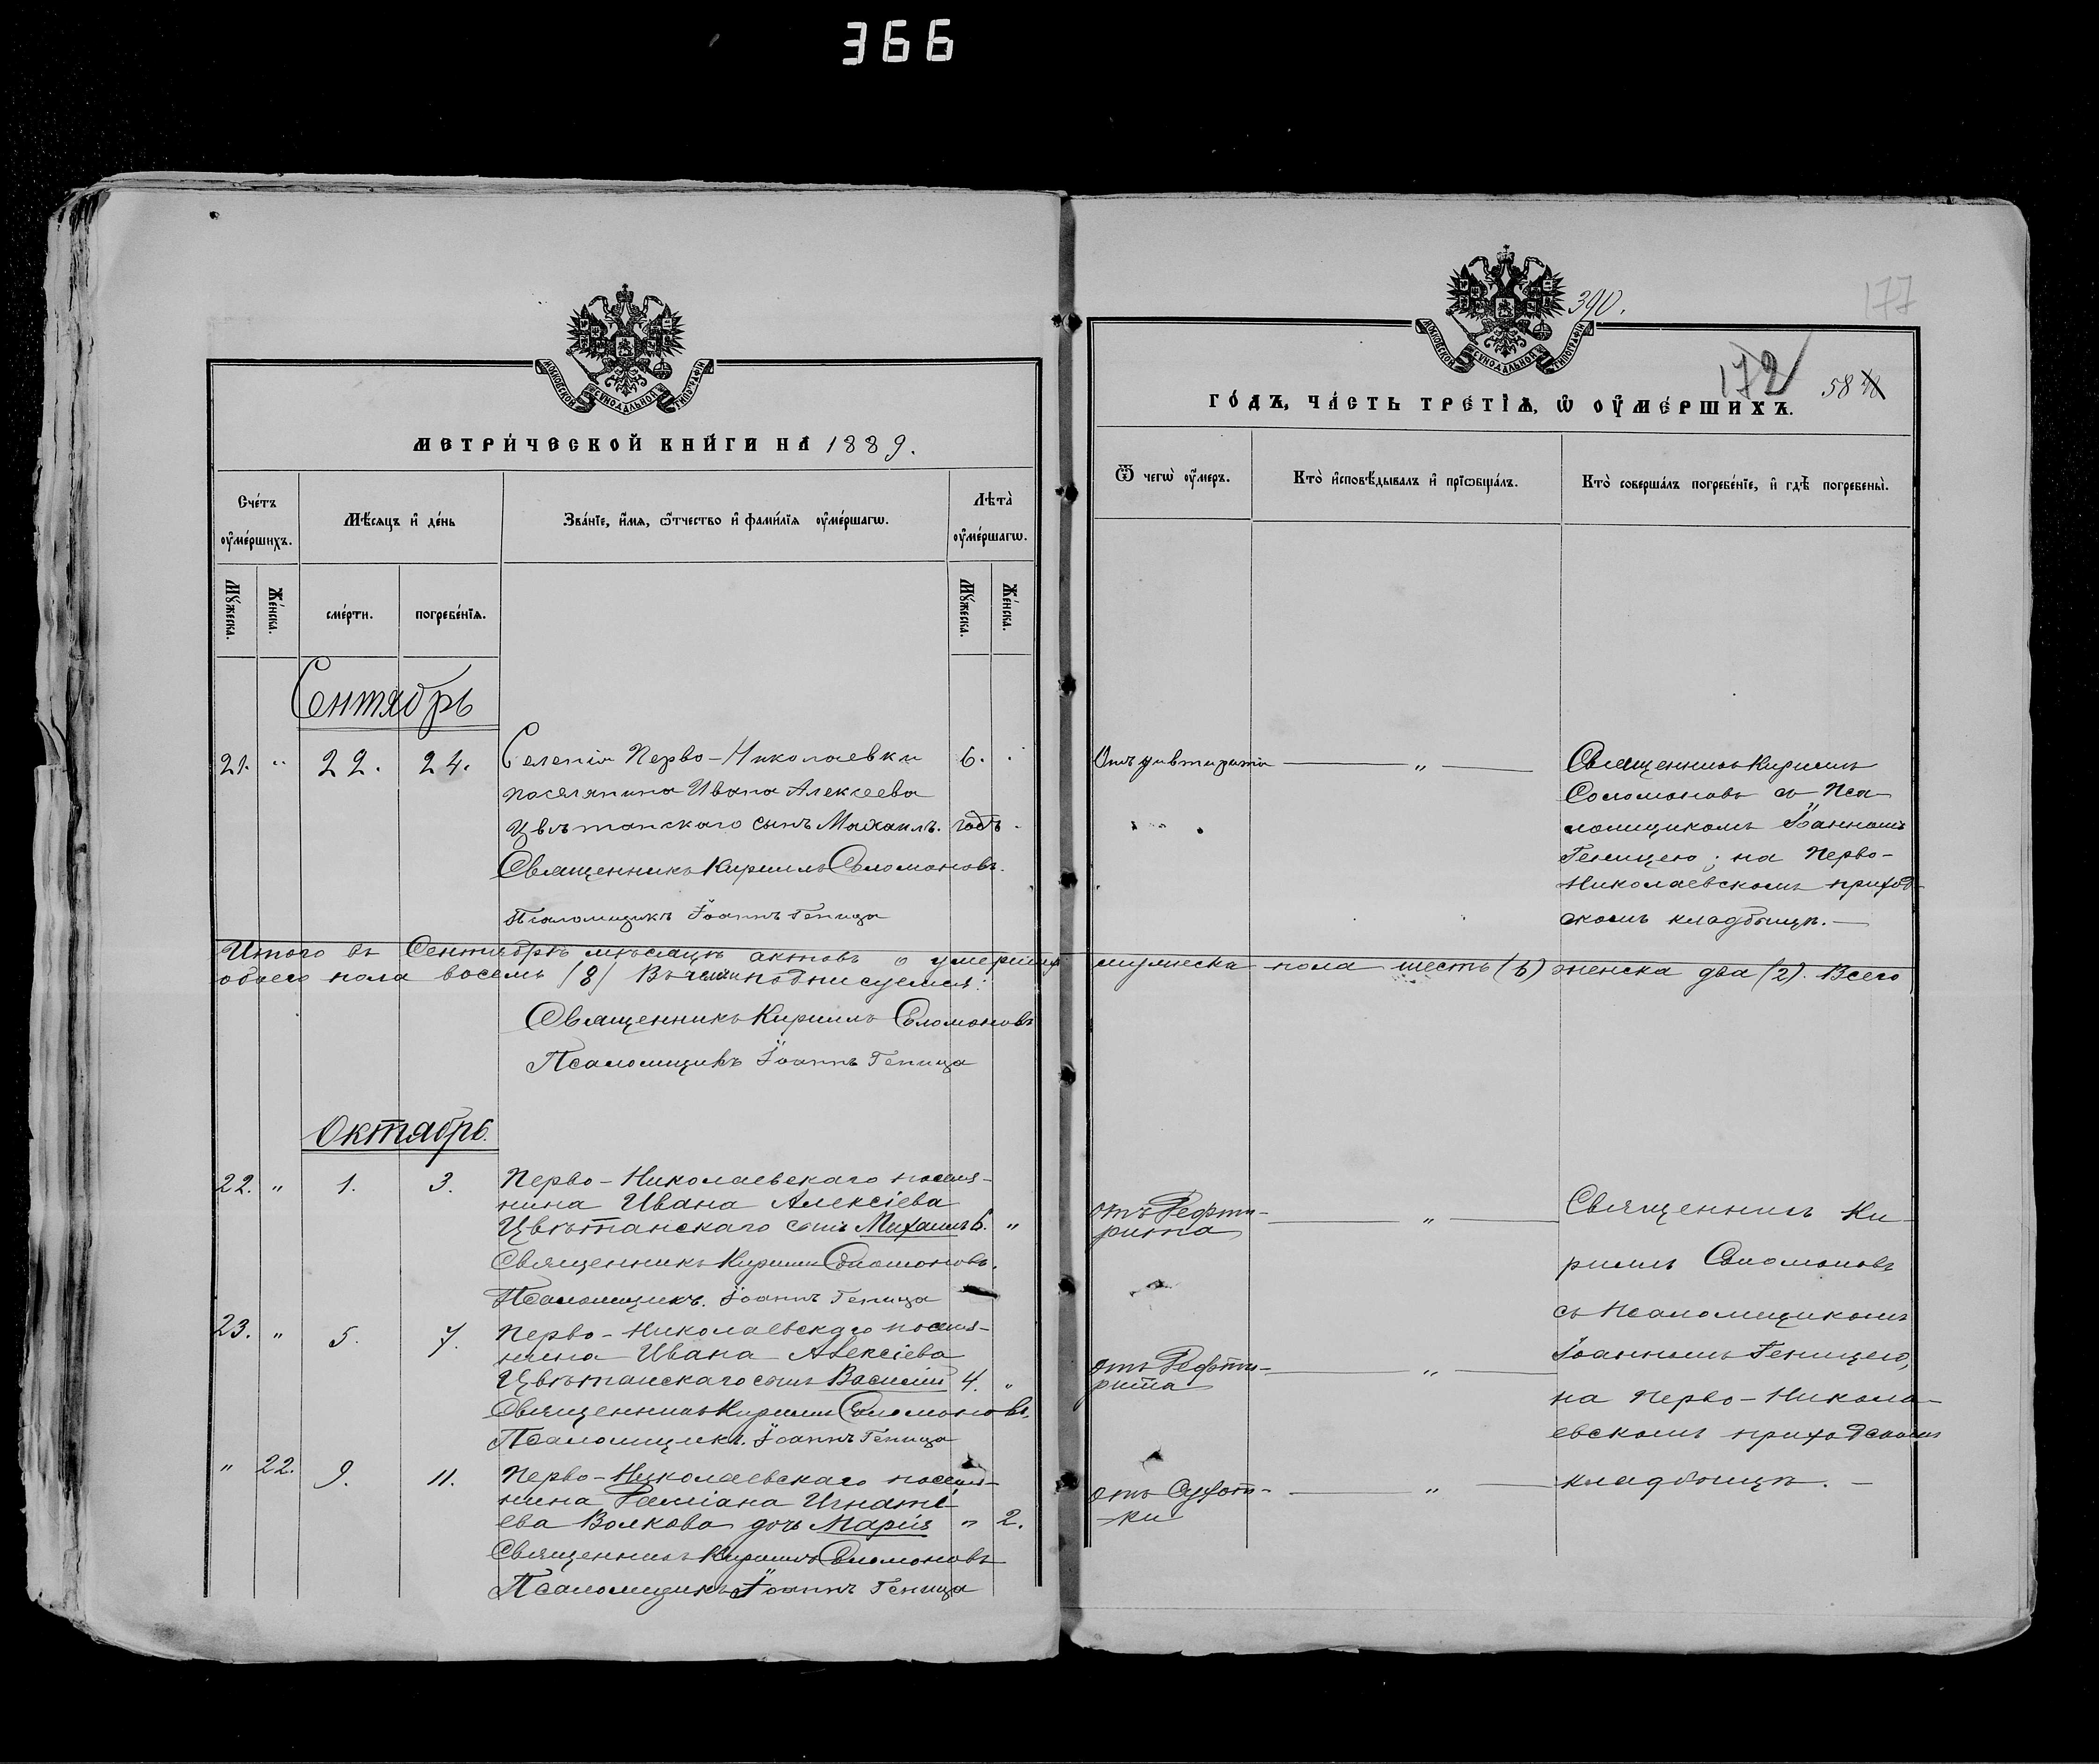 366
МОСКОВСКОЙ СУНОДАЛЬНОЙ ТИПОГРАФІИ
МЕТРИ́ЧЕСКОЙ КНИ́ГИ НА 1889.
Сче́тъ оумершихъ.
Мѣсяцъ и день
Званіе, имя, отчество и фамилія оумершагѡ.
Лѣта оумершагѡ.
Мужеска.
Женска.
смерти.
погребенія.
Мужеска.
Женска.
Сентябрь
21. " 22. 24. Селенія Перво-Николаевки 6.
поселянина Ивана Алексеева
Цвѣтанскаго сынъ Михаилъ. годъ.
Священникъ Кириллъ Соломоновъ.
Псаломщикъ Іоаннъ Геница
Итого въ Сентябрѣ мѣсяцѣ актовъ о умершихъ
обоего пола восемь (8) Въ чемъ подписуемся:
Священникъ Кириллъ Соломоновъ
Псаломщикъ Іоаннъ Геница
Октябрь.
22. " 1. 3. Перво-Николаевскаго поселя-
нина Ивана Алексіева
Цвѣтанскаго сынъ Михаилъ 6. "
Священникъ Кириллъ Соломоновъ.
Псаломщикъ. Іоаннъ Геница
23. " 5. 7. Перво-Николаевскаго поселя-
нина Ивана Алексіева
Цвѣтанскаго сынъ Василій 4. "
Священникъ Кириллъ Соломоновъ,
Псаломщикъ. Іоаннъ Геница
" 22. 9. 11. Перво-Николаевскаго поселя-
нина Игнаті-
ева Волкова дочь Марія " 2.
Священникъ Кириллъ Соломоновъ
Псаломщикъ Іоаннъ Геница
390.
177
МОСКОВСКОЙ СУНОДАЛЬНОЙ ТИПОГРАФІИ
172
58
ГО́ДЪ, ЧА́СТЬ ТРЕ́ТІѦ, Ѡ ОУМЕ́РШИХЪ.
Ѿ чегѡ оумеръ.
Кто исповѣдывалъ и пріобщалъ.
Кто совершалъ погребеніе, и гдѣ погребены.
Отъ дифтирита " Священникъ Кириллъ
Соломоновъ съ Пса-
ломщикомъ Іоанномъ
Геницею; на Перво-
Николаевскомъ приход-
скомъ кладбищѣ.
мужеска пола шесть (6) женска два (2). Всего
отъ Дефти-
рита " Священникъ Ки-
риллъ Соломоновъ
съ Псаломщикомъ
Іоанномъ Геницею,
отъ Дефти-
рита "
на Перво-Никола-
евскомъ приходскомъ
кладбищѣ.
отъ Сухот-
ки "